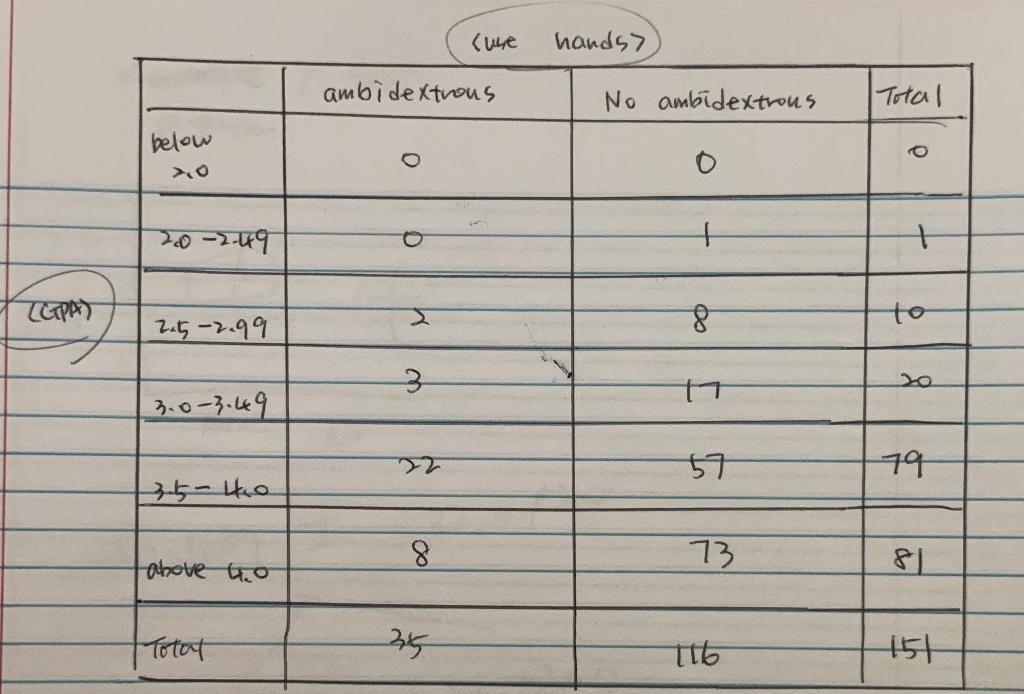 <use hands>
ambidextrous No ambidextrous Total
below
2.0 0 0 0
2.0-2.49 0 1 1
(GPA)
2.5-2.99 2 8 10
3.0-3.49 3 17 20
3.5-4.0 22 57 79
above 4.0 8 73 81
Total 35 116 151